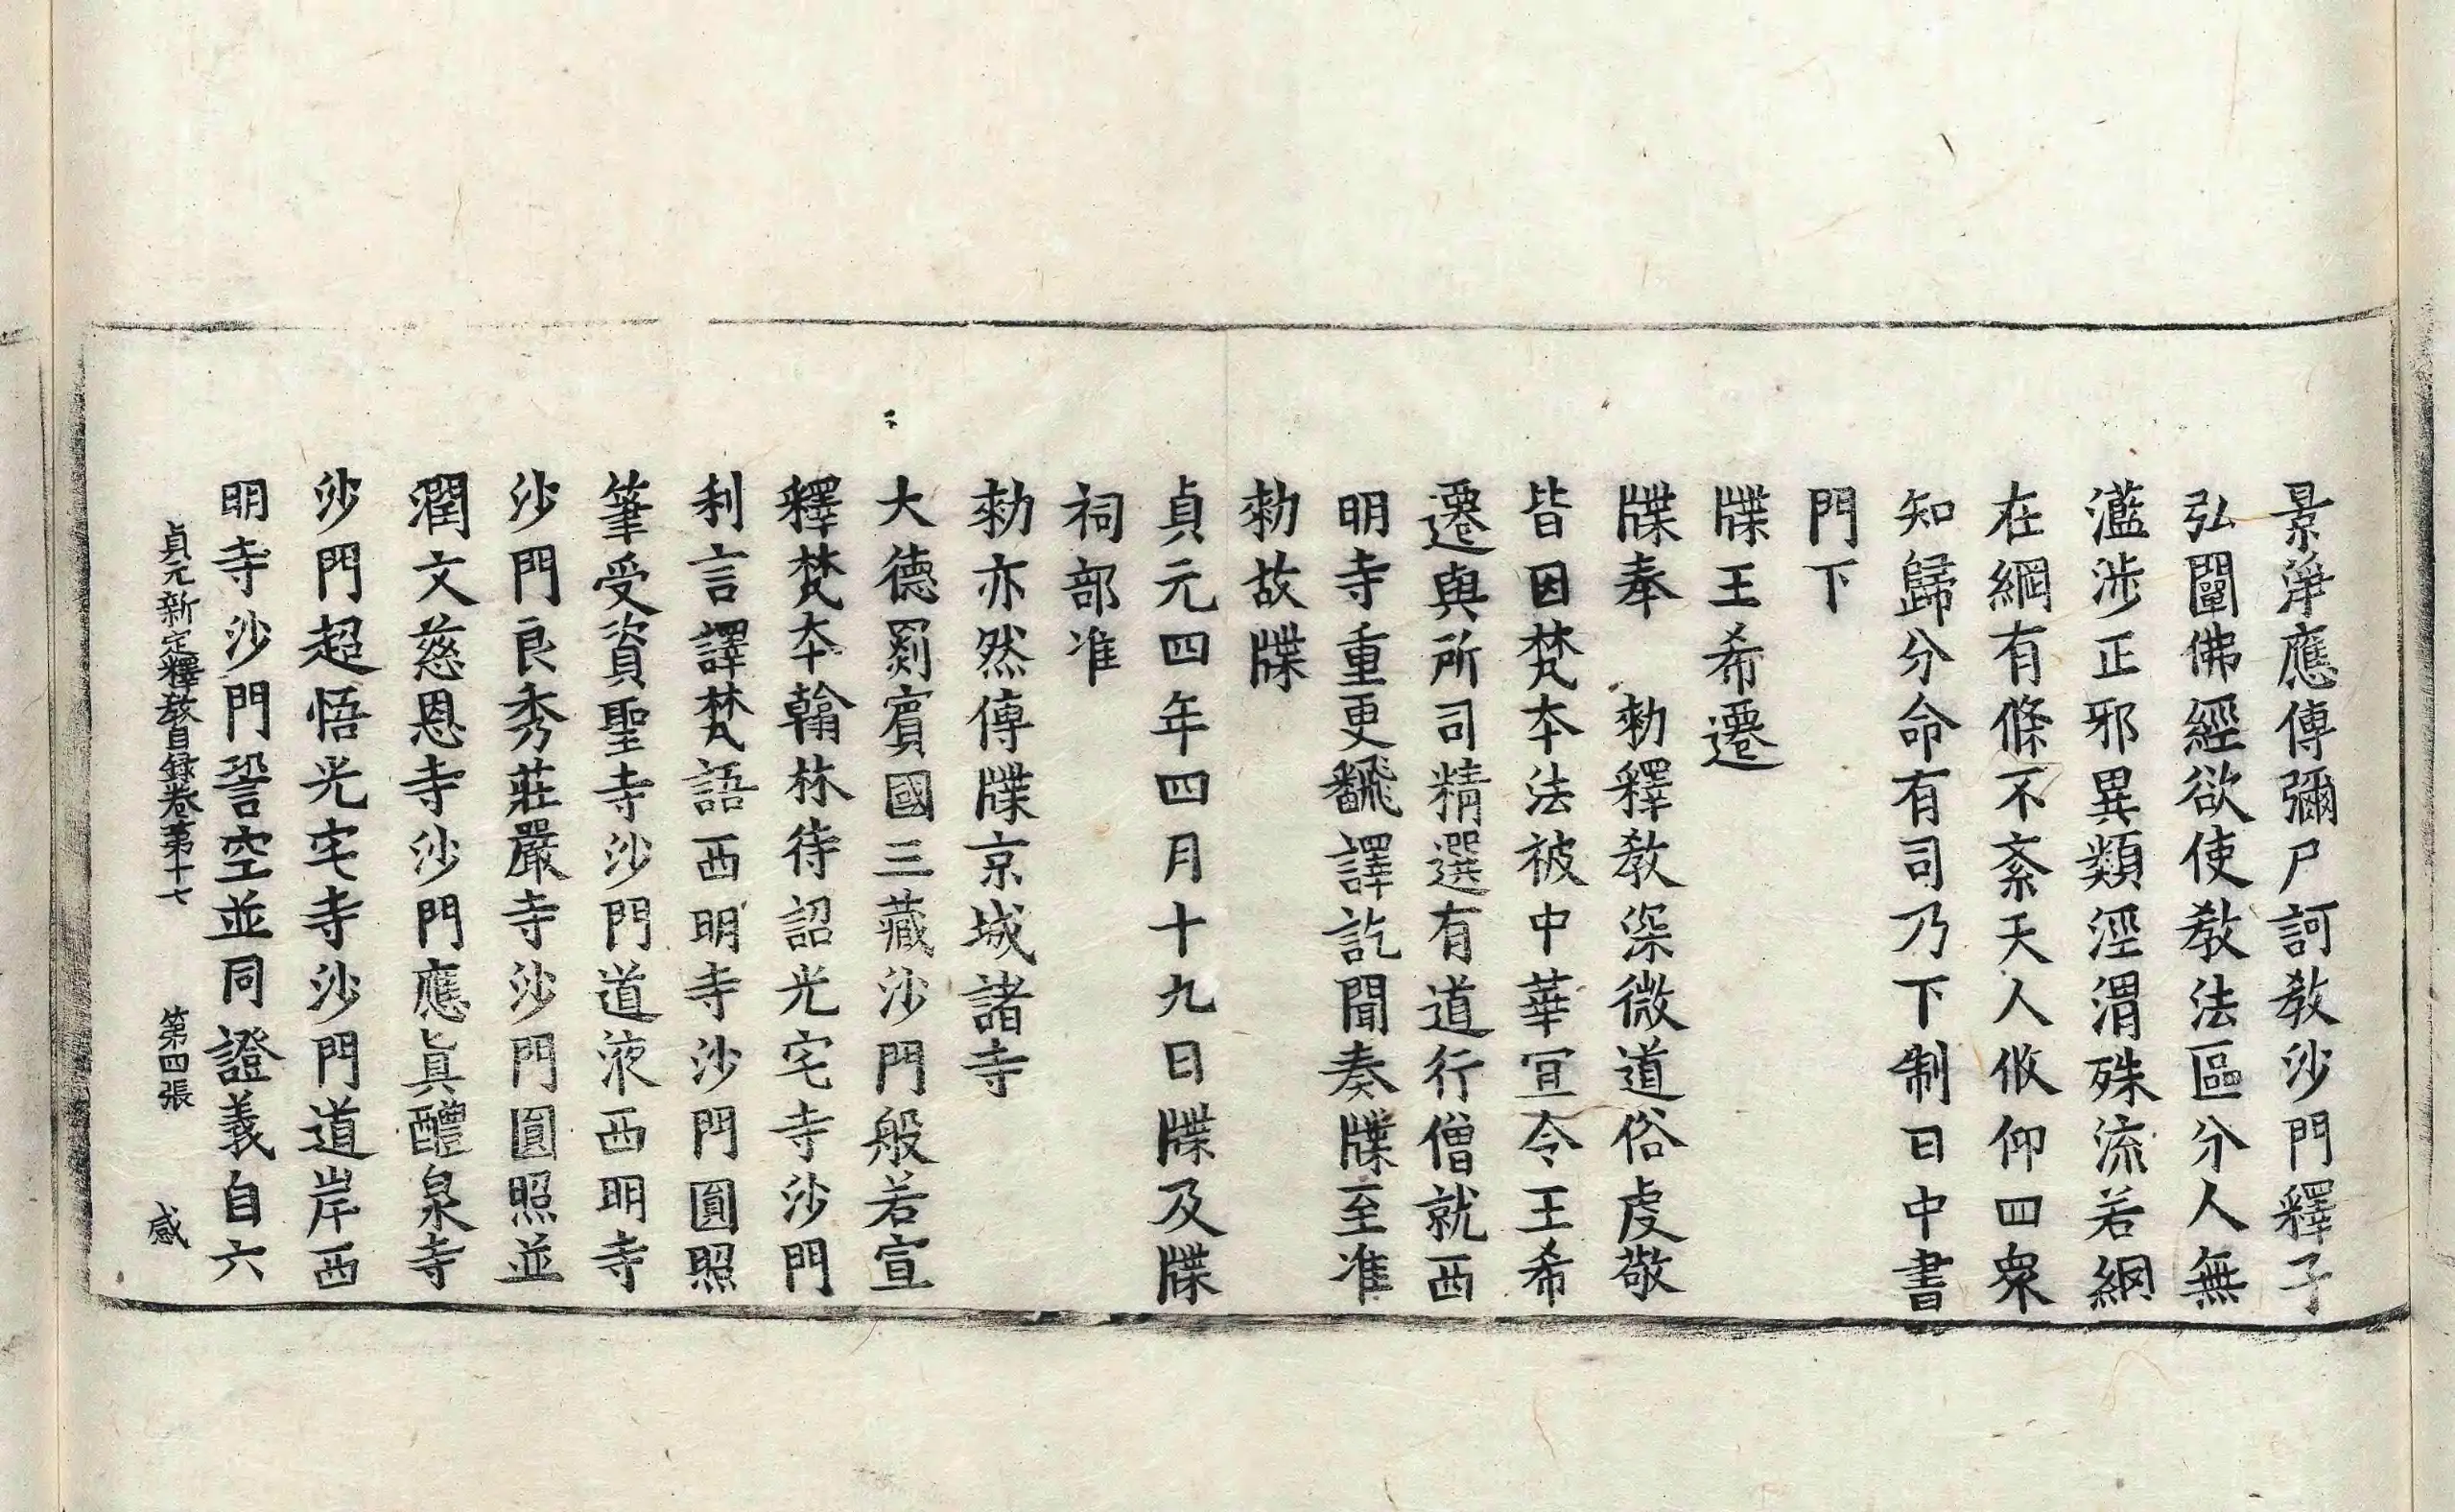 景淨應傳彌尸訶教沙門釋子
弘闡佛經欲使教法區分人無
濫涉正邪異類涇渭殊流若網
在綱有條不紊天人攸仰四衆
知歸分命有司乃下制曰中書
門下
牒王希遷
牒奉　勑釋教深微道俗虔敬
皆因梵本法被中華宣令王希
遷與所司精選有道行僧就西
明寺重更飜譯訖聞奏牒至准
勑故牒
貞元四年四月十九日牒及牒
祠部准
勑亦然傳牒京城諸寺
大德罽賓國三藏沙門般若宣
釋梵本翰林待詔光宅寺沙門
利言譯梵語西明寺沙門圓照
筆受資聖寺沙門道液西明寺
沙門良秀莊嚴寺沙門圓照並
潤文慈恩寺沙門應眞醴泉寺
沙門超悟光宅寺沙門道岸西
明寺沙門䛒空並同證義自六
貞元新定釋教目録卷第十七　第四張　感